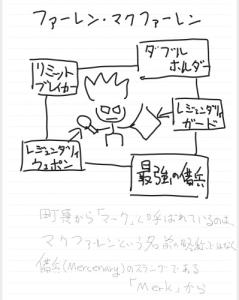 ファーレン・マクファーレン
ダブル
ホルダー
リミット
ブレイカー
レジェンダリィ
ガード
レジェンダリィ
ウェポン
最強の傭兵
町長から「マーク」と呼ばれているのは、
マクファーレンという名前の略称ではなく
傭兵(Mercenary)のスラングである
「Merk」から